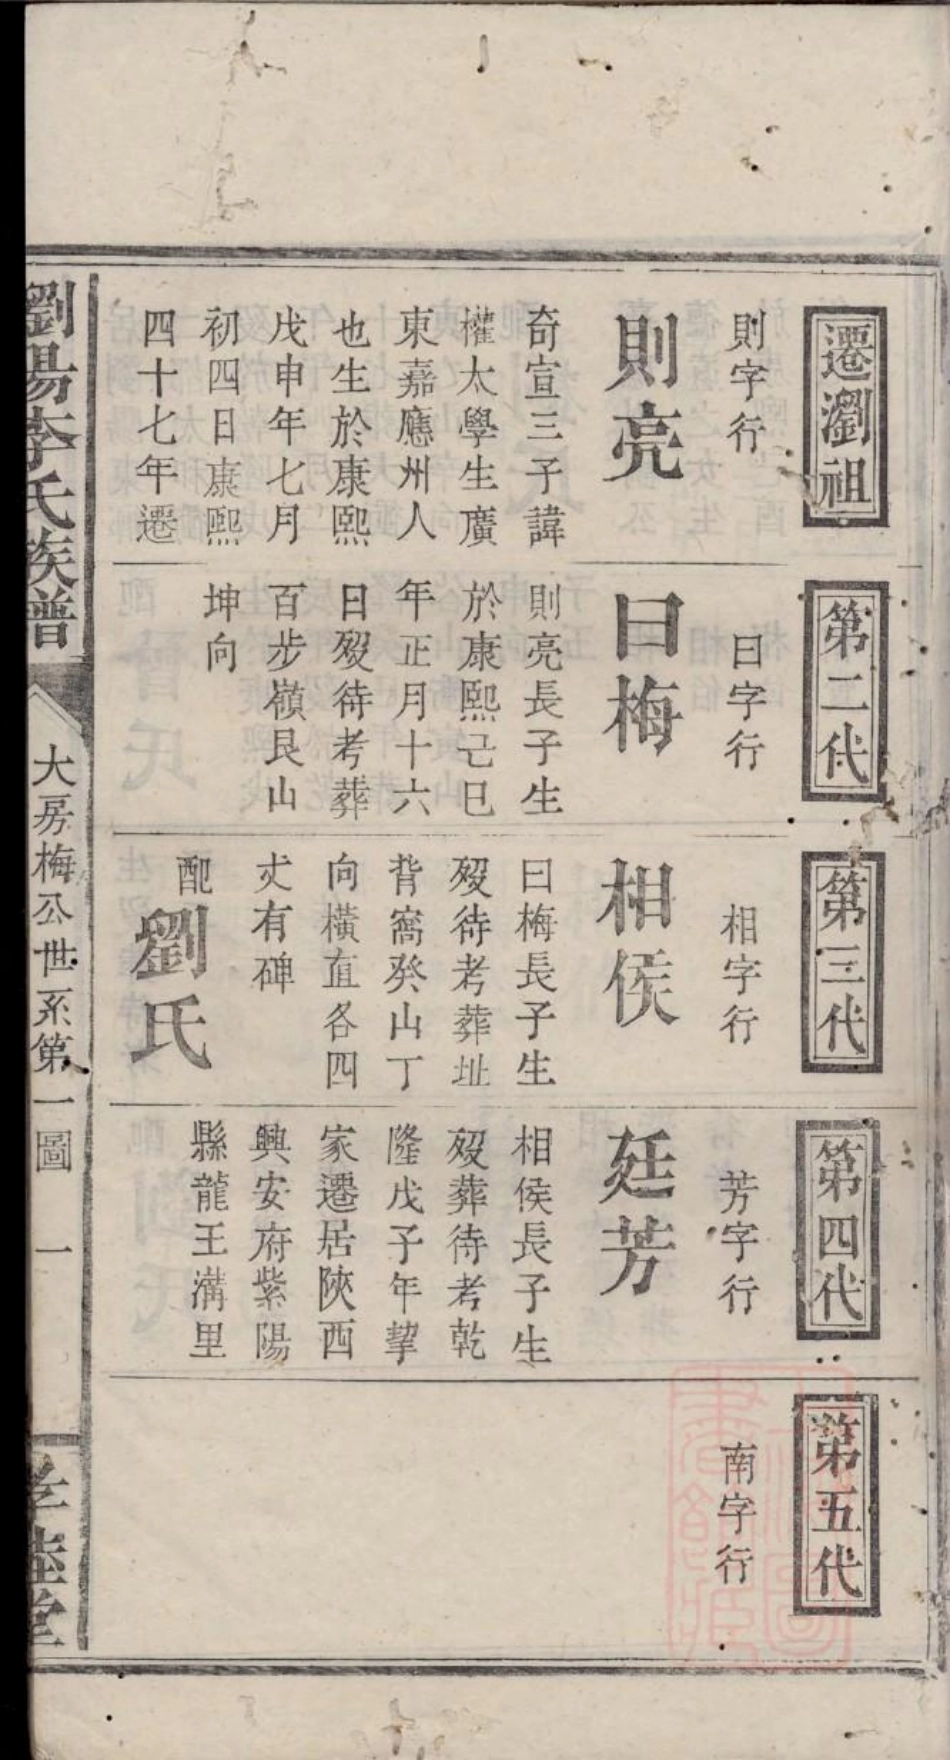 遷瀏祖
則字行
則亮
奇宣三子諱
權太學生廣
東嘉應州人
也生於康熙
戊申年七月
初四日康熙
四十七年遷
第二代
曰字行
曰梅
則亮長子生
於康熙己巳
年正月十六
日歿待考葬
百步嶺艮山
坤向
第三代
相字行
相侯
曰梅長子生
歿待考葬址
背窩癸山丁
向橫直各四
丈有碑
配
劉氏
第四代
芳字行
廷芳
相侯長子生
歿葬待考乾
隆戊子年挈
家遷居陝西
興安府紫陽
縣龍王溝里
第五代
南字行
劉陽李氏族譜
大房梅公世系第一圖
一
孝睦堂